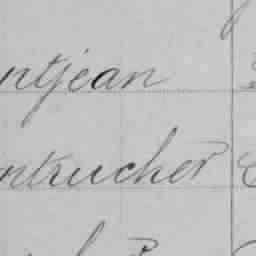 ntjean
ntrucher